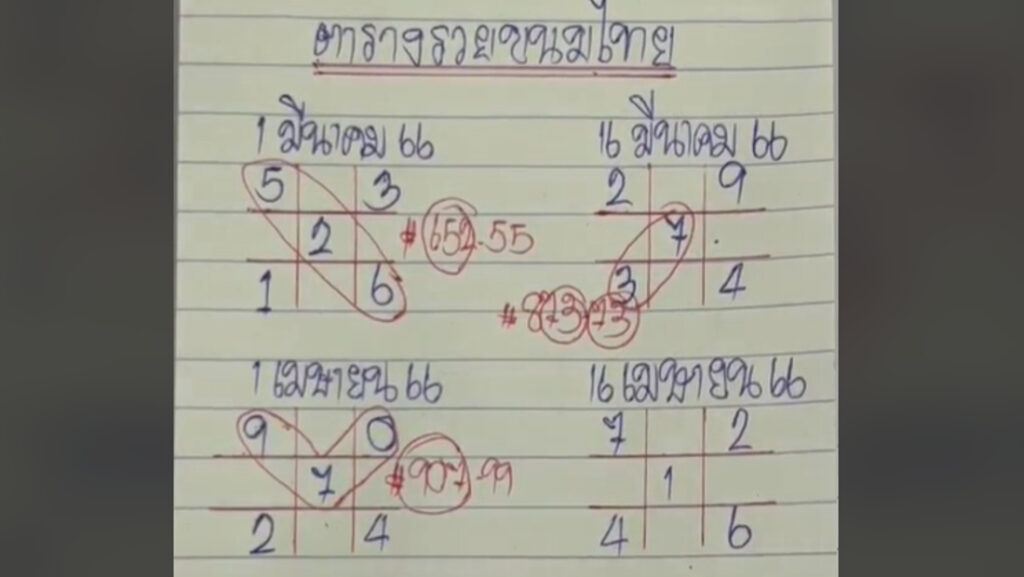 ตารางรวยขนมไทย
1 มีนาคม 66
5 3
2
1 6
#652-55
16 มีนาคม 66
2 9
7
3 4
#873-73
1 เมษายน 66
9 0
7
2 4
#907-99
16 เมษายน 66
7 2
1
4 6